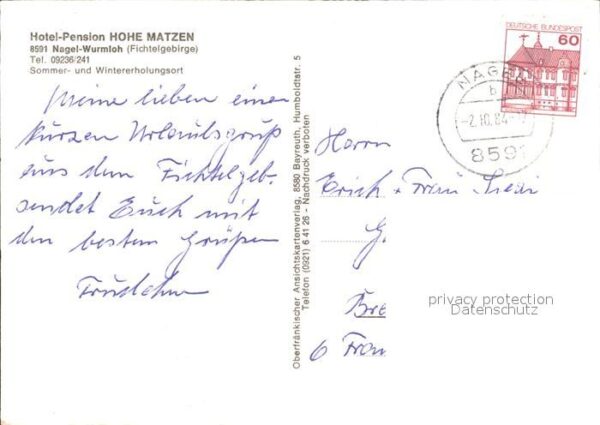 Hotel-Pension HOHE MATZEN
8591 Nagel-Wurmloh (Fichtelgebirge)
Tel. 09236/241
Sommer- und Wintererholungsort
Meine lieben einen
kurzen Urlaubsgruß
aus dem Fichtelgeb.
sendet Euch mit
den besten Grüßen
Trudchen
Oberfränkischer Ansichtskartenverlag, 8580 Bayreuth, Humboldtstr. 5
Telefon (0921) 6 41 26 - Nachdruck verboten
DEUTSCHE BUNDESPOST
60
NAGEL
b
-2.10.84
8591
Herrn
Erich + Frau
G.
Bre
6 Fran
privacy protection
Datenschutz